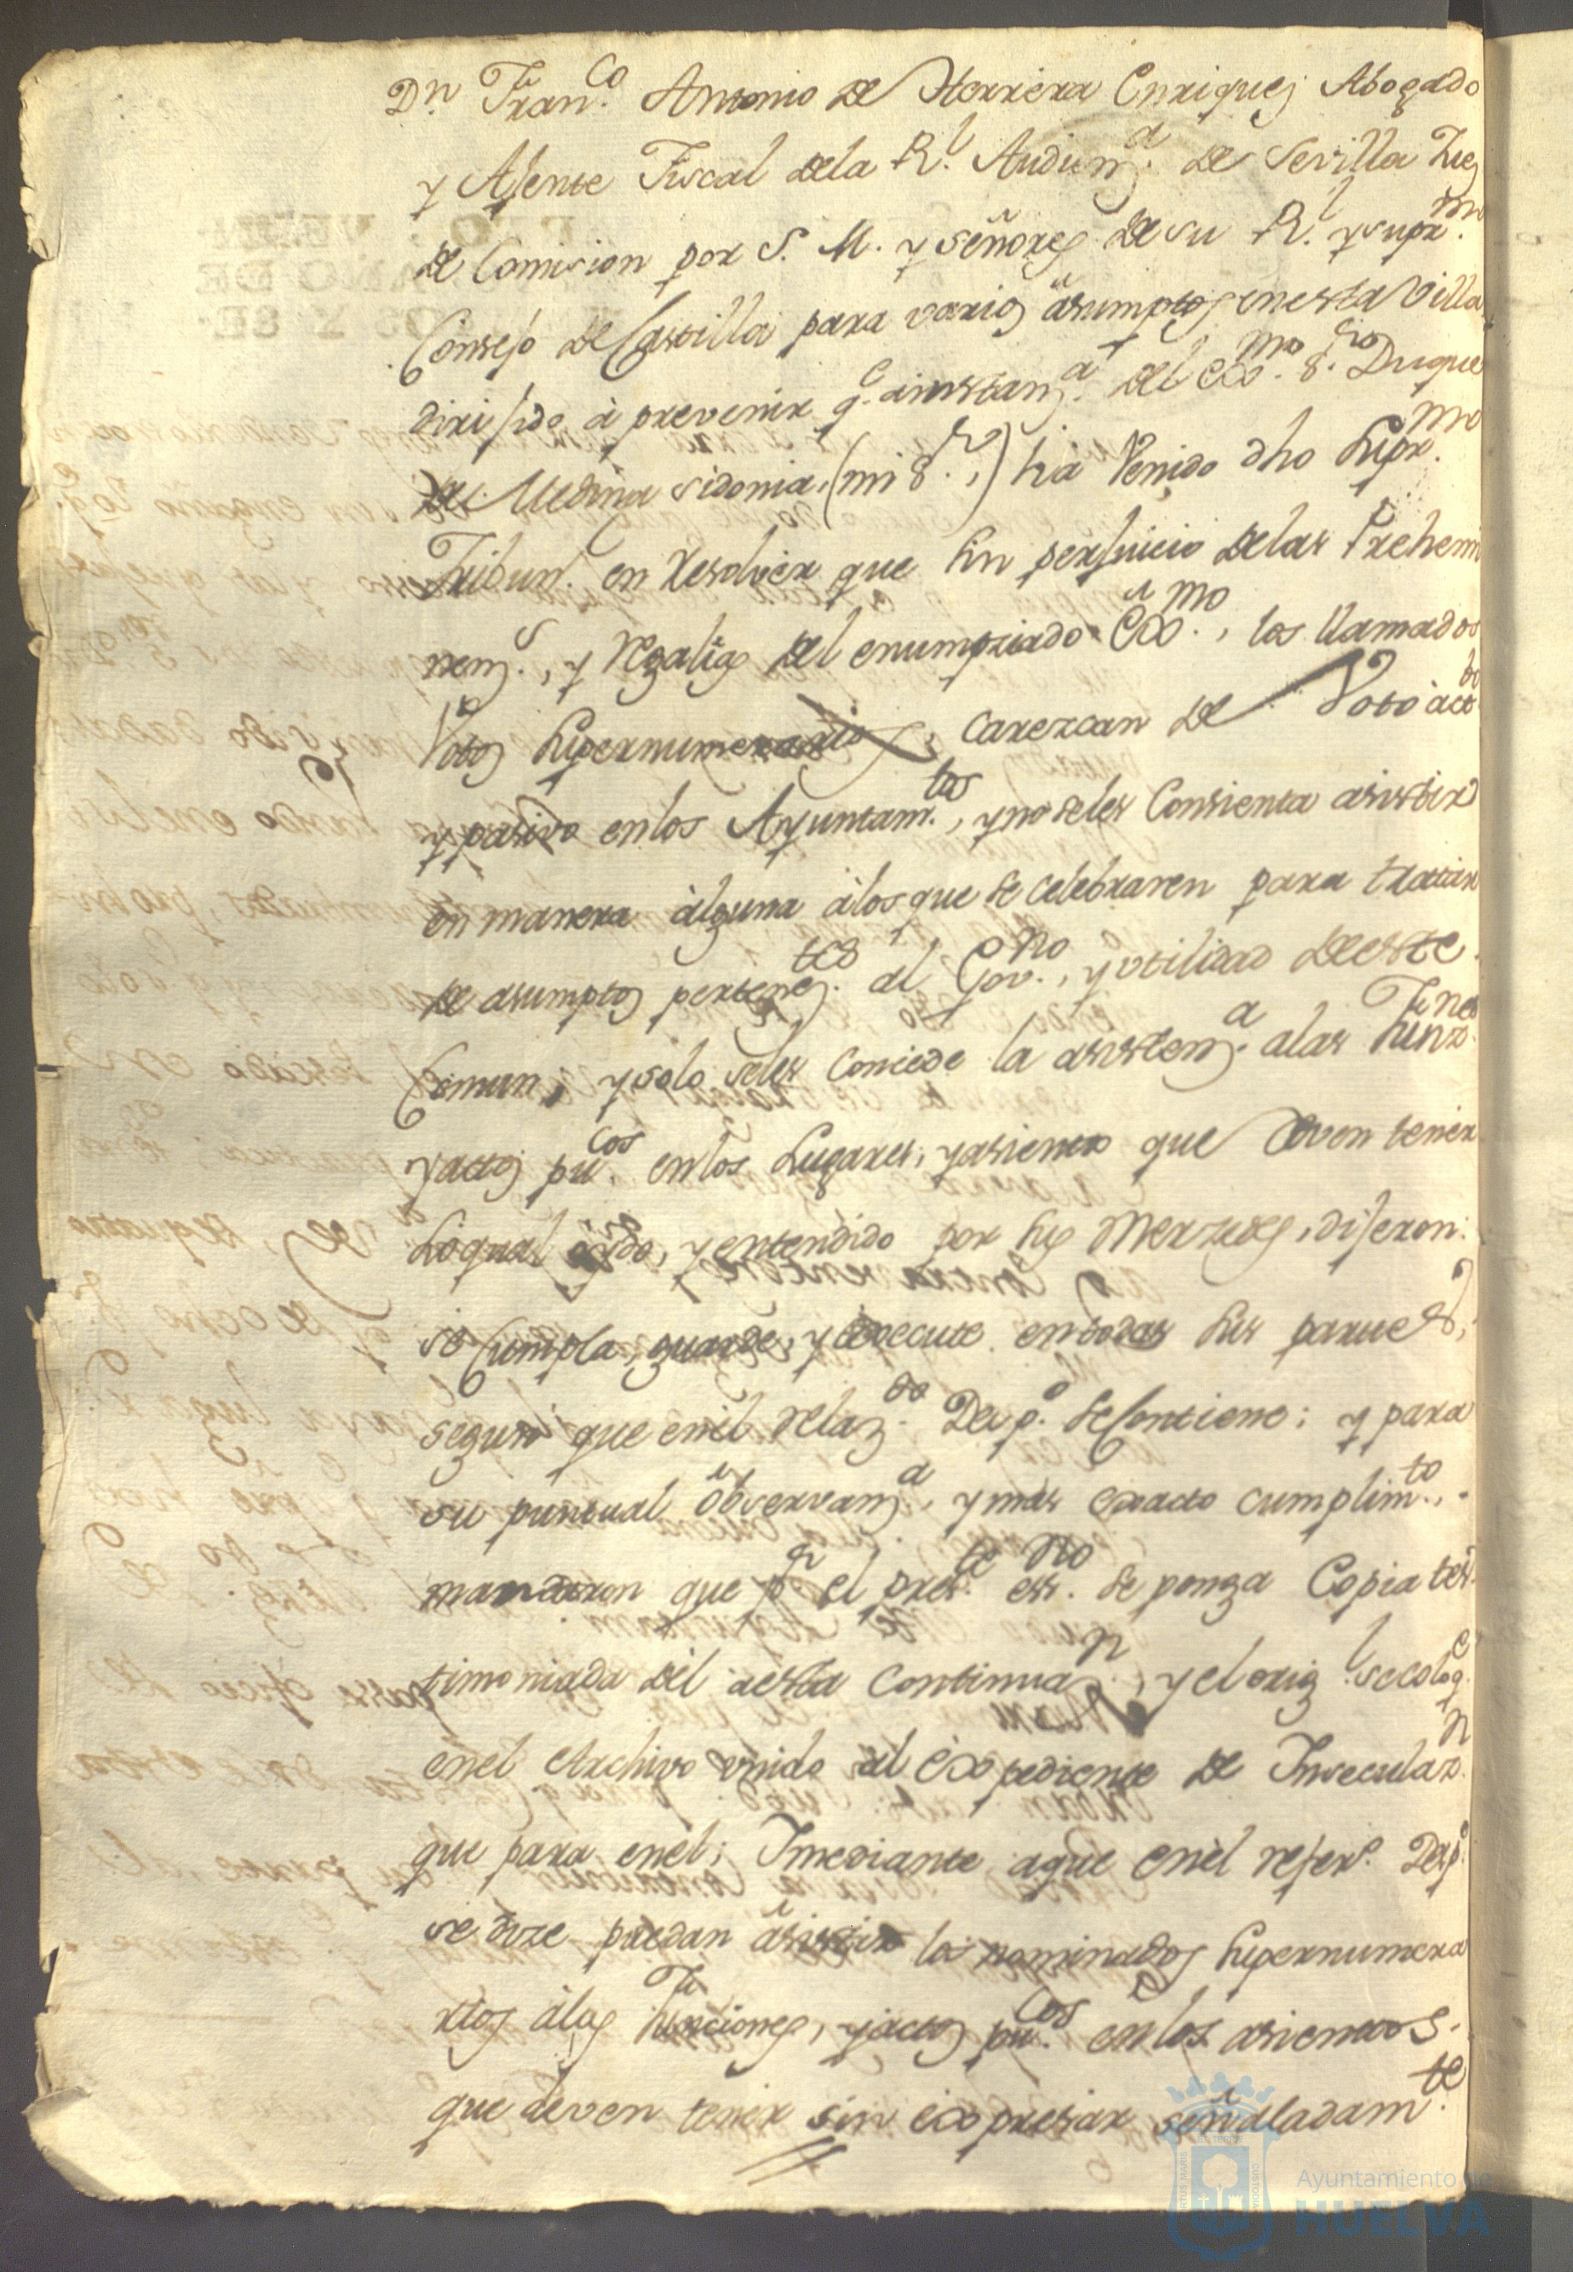 Dn Franco. Antonio de Herrera Enriquez Abogado
y Ajente Fiscal dela Rl. Audienza. de Sevilla Juez
de Comision por S. M. y señores de su Rl. y supmo.
Consejo de Castilla para varios asumptos en esta Villa
dirijido à prevenir qe. ainstanza. del Exmo. Sor. Duque
de Medina sidonia, (mi Sor.,) ha Venido dho Supmo.
Tribunl. en resolver que sin perjuicio delas Prehemi
nenzs., y regalias del enumpziado Exmo., los llamados
Votos supernumerarios, carezcan de Voto àctbo
y pasivo enlos Ayuntamtos., yno seles Consienta asistir
en manera àlguna àlos que se celebraren para tratar
de asumptos perteneztes. al Govno., y vtilidad deeste
Comun, y solo seles Concede la asistenza. alas Funznes.
yactos pucos. enlos Lugares, y asiento que deven tener
Loqual oydo, y entendido por sus Merzedes, dijeron:
se Cumpla, guarde, y execute en todas sus partes,
segun que enèl relazdo. Despo. se Contiene: y para
su puntual observanza., y mas exacto cumplimto.,
mandaron que pr. el preste. essno. se ponga Copia tes-
timoniada dèl aesta Continuazn., y el origl. se coloqe.
enel Archivo vnido al expediente de Insecularn.
que para enel; Imediante aque enel refero. Despo.
se dize puedan asistir los nominados supernumera
rios àlas Funciones, yactos pucos. enlos asientos
que deven tener sin expresar señaladamte.
Ayuntamiento de
HUELVA